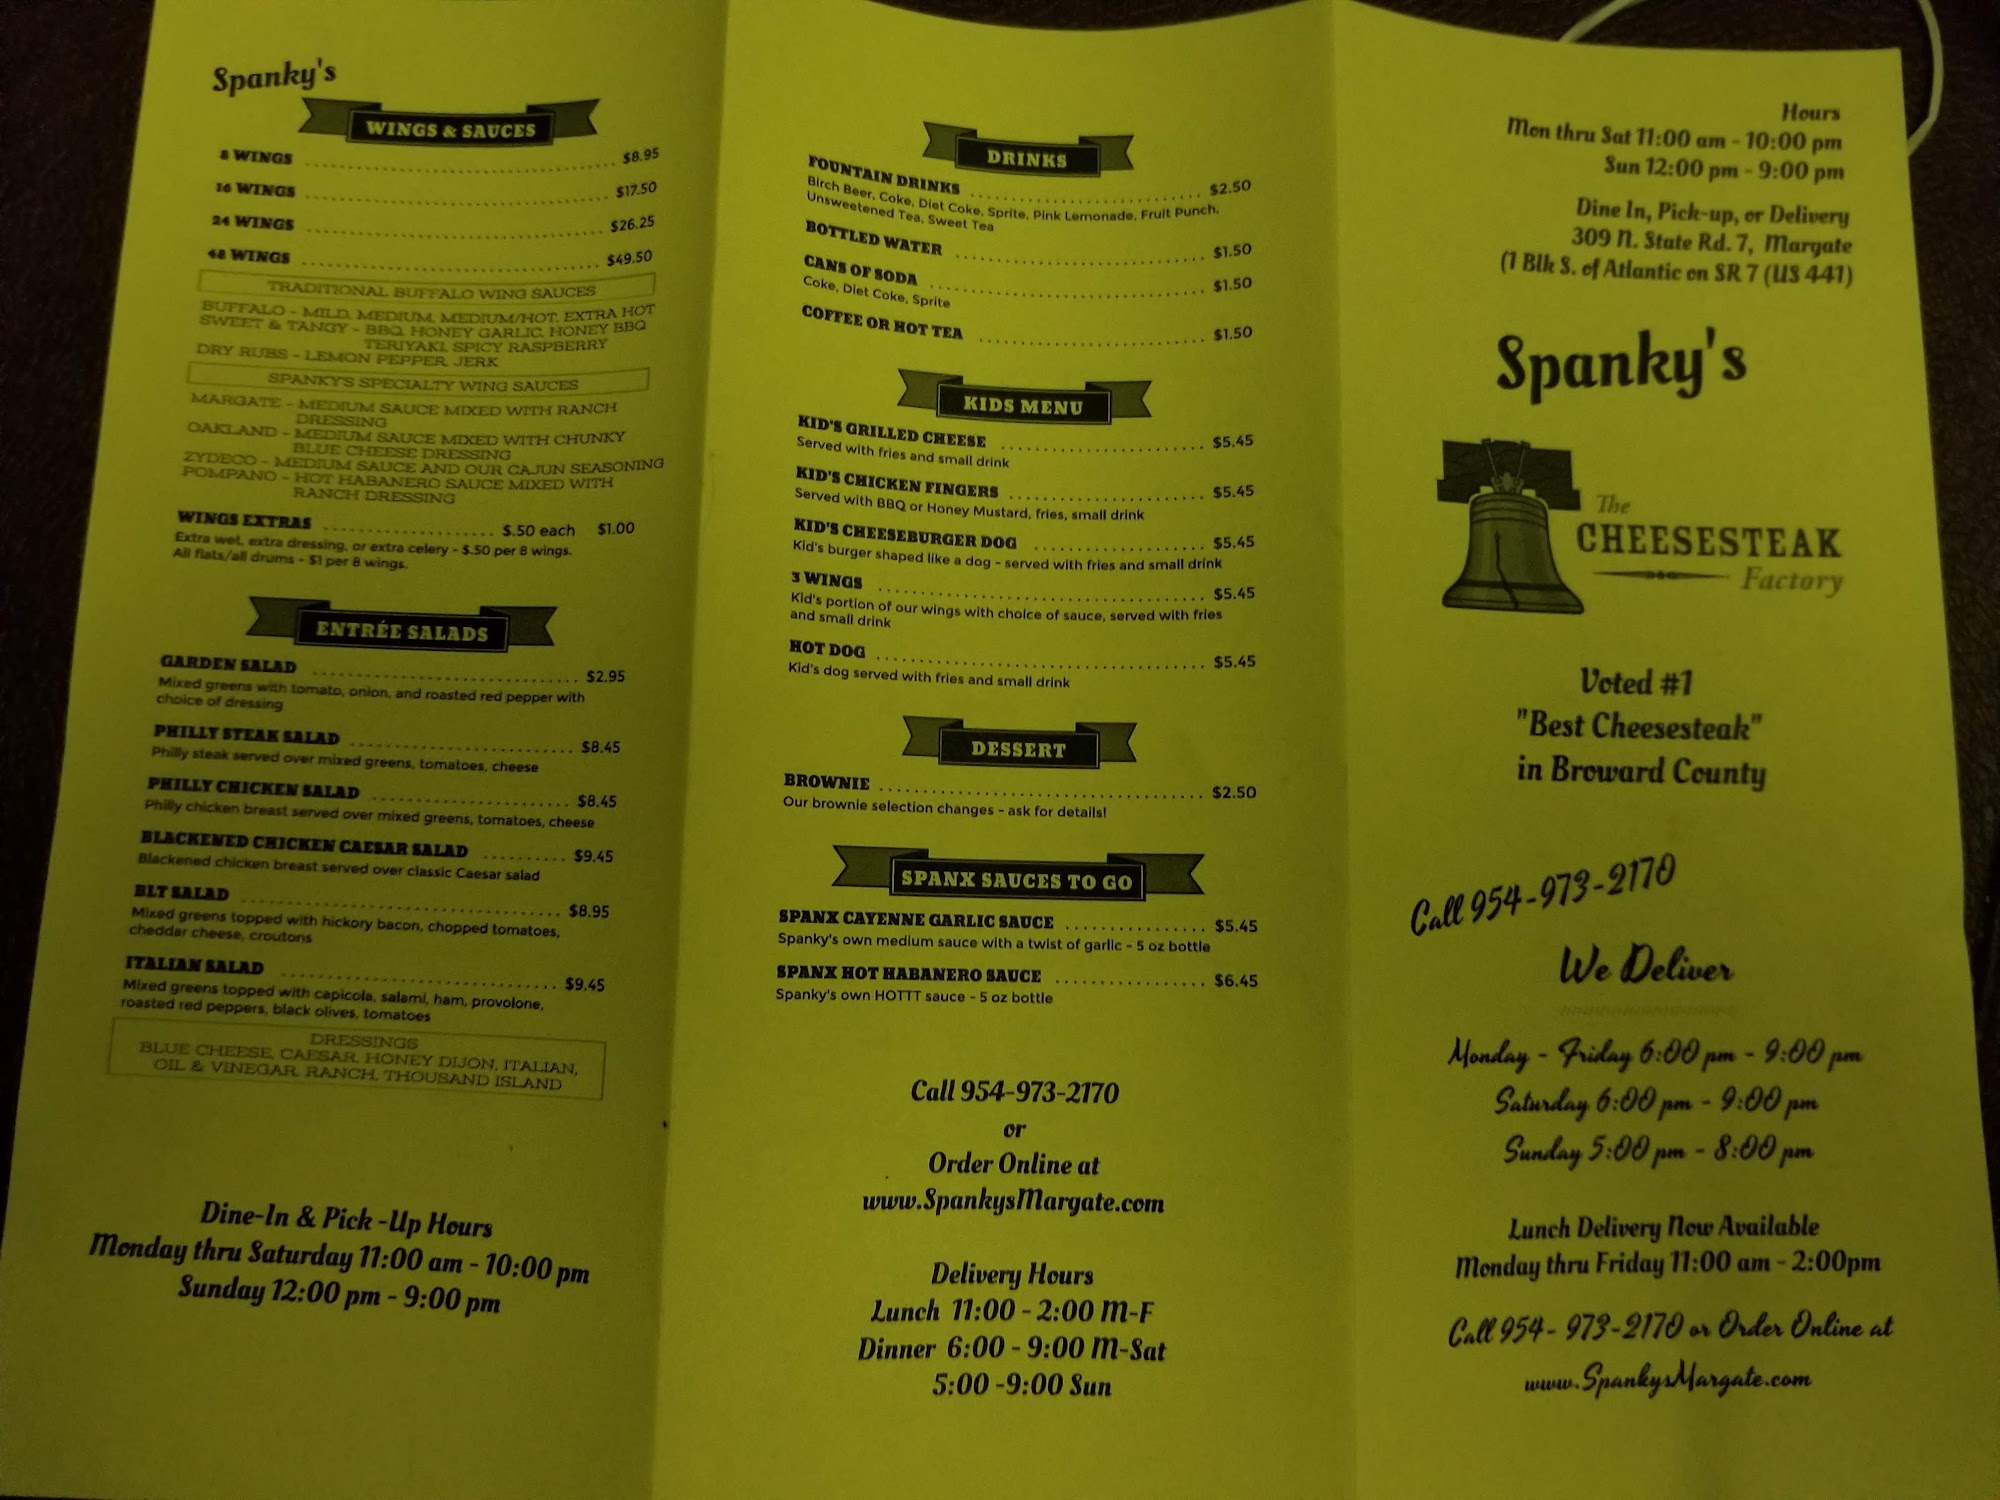 Spanky's
WINGS & SAUCES
8 WINGS ........ $8.95
16 WINGS ........ $17.50
24 WINGS ........ $26.25
48 WINGS ........ $49.50
TRADITIONAL BUFFALO WING SAUCES
BUFFALO - MILD, MEDIUM, MEDIUM/HOT, EXTRA HOT
SWEET & TANGY - BBQ, HONEY GARLIC, HONEY BBQ
TERIYAKI, SPICY RASPBERRY
DRY RUBS - LEMON PEPPER, JERK
SPANKY'S SPECIALTY WING SAUCES
MARGATE - MEDIUM SAUCE MIXED WITH RANCH
DRESSING
OAKLAND - MEDIUM SAUCE MIXED WITH CHUNKY
BLUE CHEESE DRESSING
ZYDECO - MEDIUM SAUCE AND OUR CAJUN SEASONING
POMPANO - HOT HABANERO SAUCE MIXED WITH
RANCH DRESSING
WINGS EXTRAS ........ $.50 each $1.00
Extra wet, extra dressing, or extra celery - $.50 per 8 wings.
All flats/all drums - $1 per 8 wings.
ENTRÉE SALADS
GARDEN SALAD ........ $2.95
Mixed greens with tomato, onion, and roasted red pepper with
choice of dressing
PHILLY STEAK SALAD ........ $8.45
Philly steak served over mixed greens, tomatoes, cheese
PHILLY CHICKEN SALAD ........ $8.45
Philly chicken breast served over mixed greens, tomatoes, cheese
BLACKENED CHICKEN CAESAR SALAD ........ $9.45
Blackened chicken breast served over classic Caesar salad
BLT SALAD ........ $8.95
Mixed greens topped with hickory bacon, chopped tomatoes,
cheddar cheese, croutons
ITALIAN SALAD ........ $9.45
Mixed greens topped with capicola, salami, ham, provolone,
roasted red peppers, black olives, tomatoes
DRESSINGS
BLUE CHEESE, CAESAR, HONEY DIJON, ITALIAN,
OIL & VINEGAR, RANCH, THOUSAND ISLAND
Dine-In & Pick -Up Hours
Monday thru Saturday 11:00 am - 10:00 pm
Sunday 12:00 pm - 9:00 pm
DRINKS
FOUNTAIN DRINKS ........ $2.50
Birch Beer, Coke, Diet Coke, Sprite, Pink Lemonade, Fruit Punch,
Unsweetened Tea, Sweet Tea
BOTTLED WATER ........ $1.50
CANS OF SODA ........ $1.50
Coke, Diet Coke, Sprite
COFFEE OR HOT TEA ........ $1.50
KIDS MENU
KID'S GRILLED CHEESE ........ $5.45
Served with fries and small drink
KID'S CHICKEN FINGERS ........ $5.45
Served with BBQ or Honey Mustard, fries, small drink
KID'S CHEESEBURGER DOG ........ $5.45
Kid's burger shaped like a dog - served with fries and small drink
3 WINGS ........ $5.45
Kid's portion of our wings with choice of sauce, served with fries
and small drink
HOT DOG ........ $5.45
Kid's dog served with fries and small drink
DESSERT
BROWNIE ........ $2.50
Our brownie selection changes - ask for details!
SPANX SAUCES TO GO
SPANX CAYENNE GARLIC SAUCE ........ $5.45
Spanky's own medium sauce with a twist of garlic - 5 oz bottle
SPANX HOT HABANERO SAUCE ........ $6.45
Spanky's own HOTTT sauce - 5 oz bottle
Call 954-973-2170
or
Order Online at
www.SpankysMargate.com
Delivery Hours
Lunch 11:00 - 2:00 M-F
Dinner 6:00 - 9:00 M-Sat
5:00 -9:00 Sun
Hours
Mon thru Sat 11:00 am - 10:00 pm
Sun 12:00 pm - 9:00 pm
Dine In, Pick-up, or Delivery
309 N. State Rd. 7, Margate
(1 Blk S. of Atlantic on SR 7 (US 441)
Spanky's
The
CHEESESTEAK
Factory
Voted #1
"Best Cheesesteak"
in Broward County
Call 954-973-2170
We Deliver
Monday - Friday 6:00 pm - 9:00 pm
Saturday 6:00 pm - 9:00 pm
Sunday 5:00 pm - 8:00 pm
Lunch Delivery Now Available
Monday thru Friday 11:00 am - 2:00pm
Call 954- 973-2170 or Order Online at
www.SpankysMargate.com